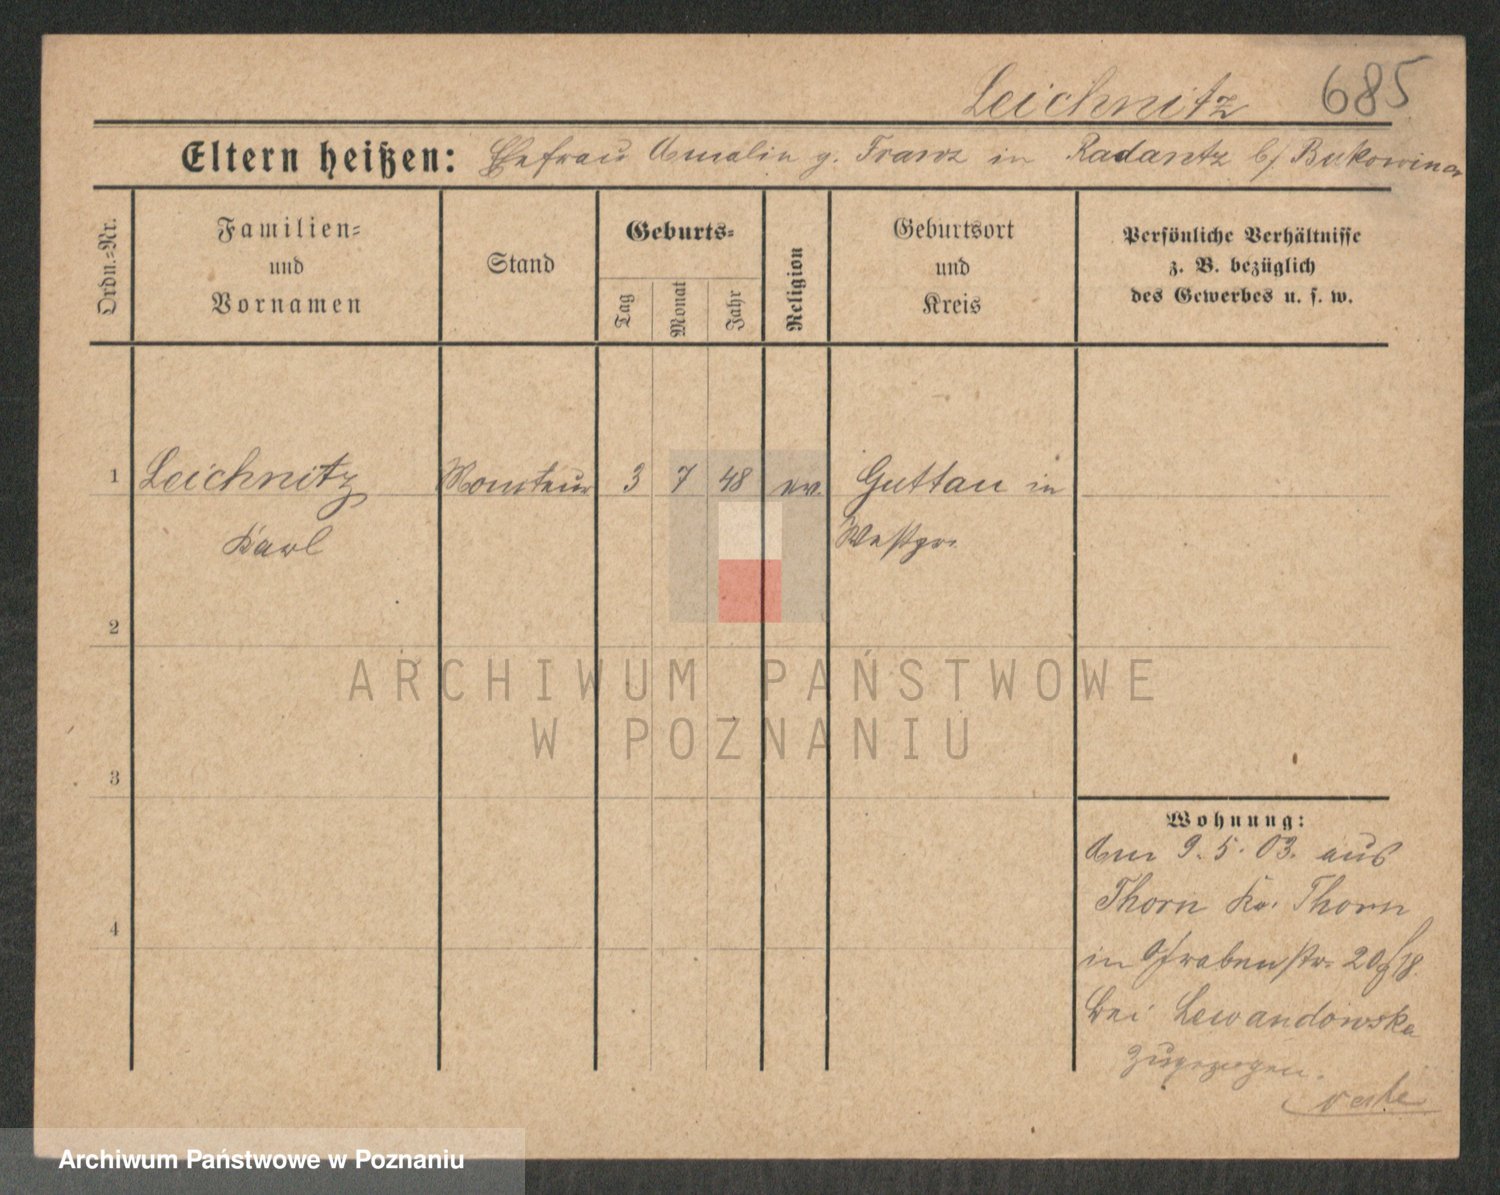 Leichnitz 685
Eltern heißen: Ehefrau Amalin g. Franz in Radantz b/ Bukowina
Ordn.-Nr.
Familien-
und
Vornamen
Stand
Geburts-
Tag
Monat
Jahr
Religion
Geburtsort
und
Kreis
Persönliche Verhältnisse
z. B. bezüglich
des Gewerbes u. s. w.
1 Leichnitz Monteur 3 7 48 ev. Guttau in
Karl Westpr.
2
ARCHIWUM PAŃSTWOWE
W POZNANIU
3
Wohnung:
Am 9.5.03. aus
Thorn Kr. Thorn
4
in Grabenstr. 20
bei Lewandowska
zugezogen.
Archiwum Państwowe w Poznaniu